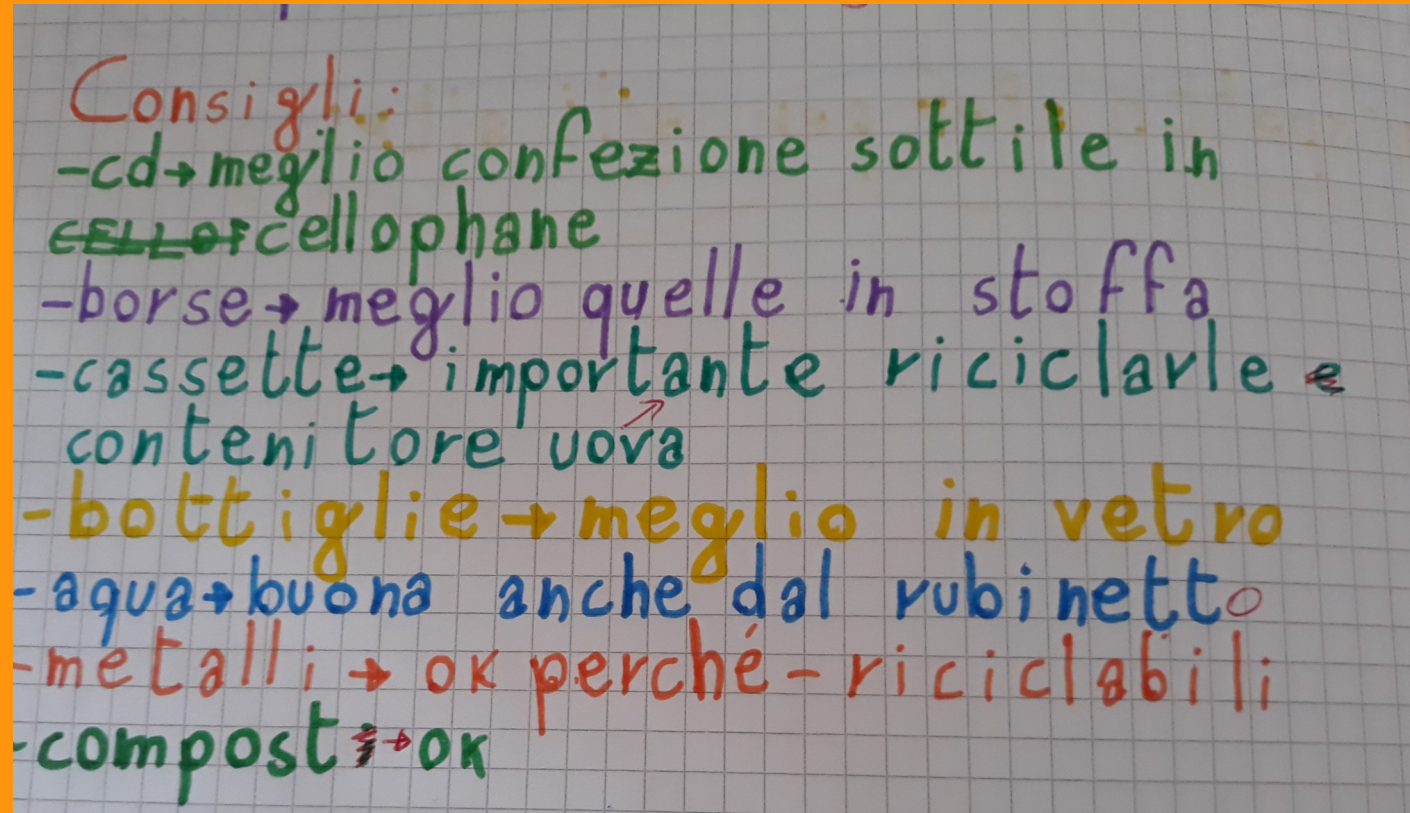 Consigli:
-cd→megilio confezione sottile in
CELLOF cellophane
-borse→meglio quelle in stoffa
-cassette→importante riciclarle e
contenitore uova
-bottiglie→meglio in vetro
-aqua→buona anche dal rubinetto
-metalli→ok perché-riciclabili
-compost→ok